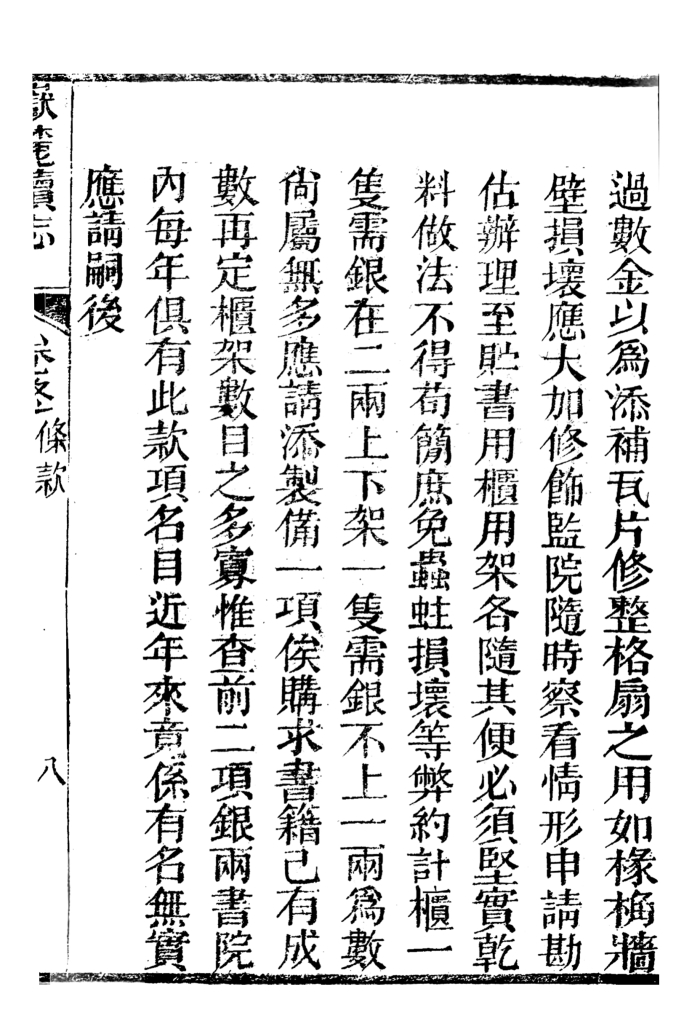 過數金以爲添補瓦片修整格扇之用如椽桷牆
壁損壞應大加修飾監院隨時察看情形申請勘
估辦理至貯書用櫃用架各隨其便必須堅實乾
料做法不得苟簡庶免蟲蛀損壞等弊約計櫃一
隻需銀在二兩上下架一隻需銀不上一兩爲數
尙屬無多應請添製備一項俟購求書籍已有成
數再定櫃架數目之多寡惟查前二項銀兩書院
內每年俱有此款項名目近年來竟係有名無實
應請嗣後
嶽麓續志
條款
八